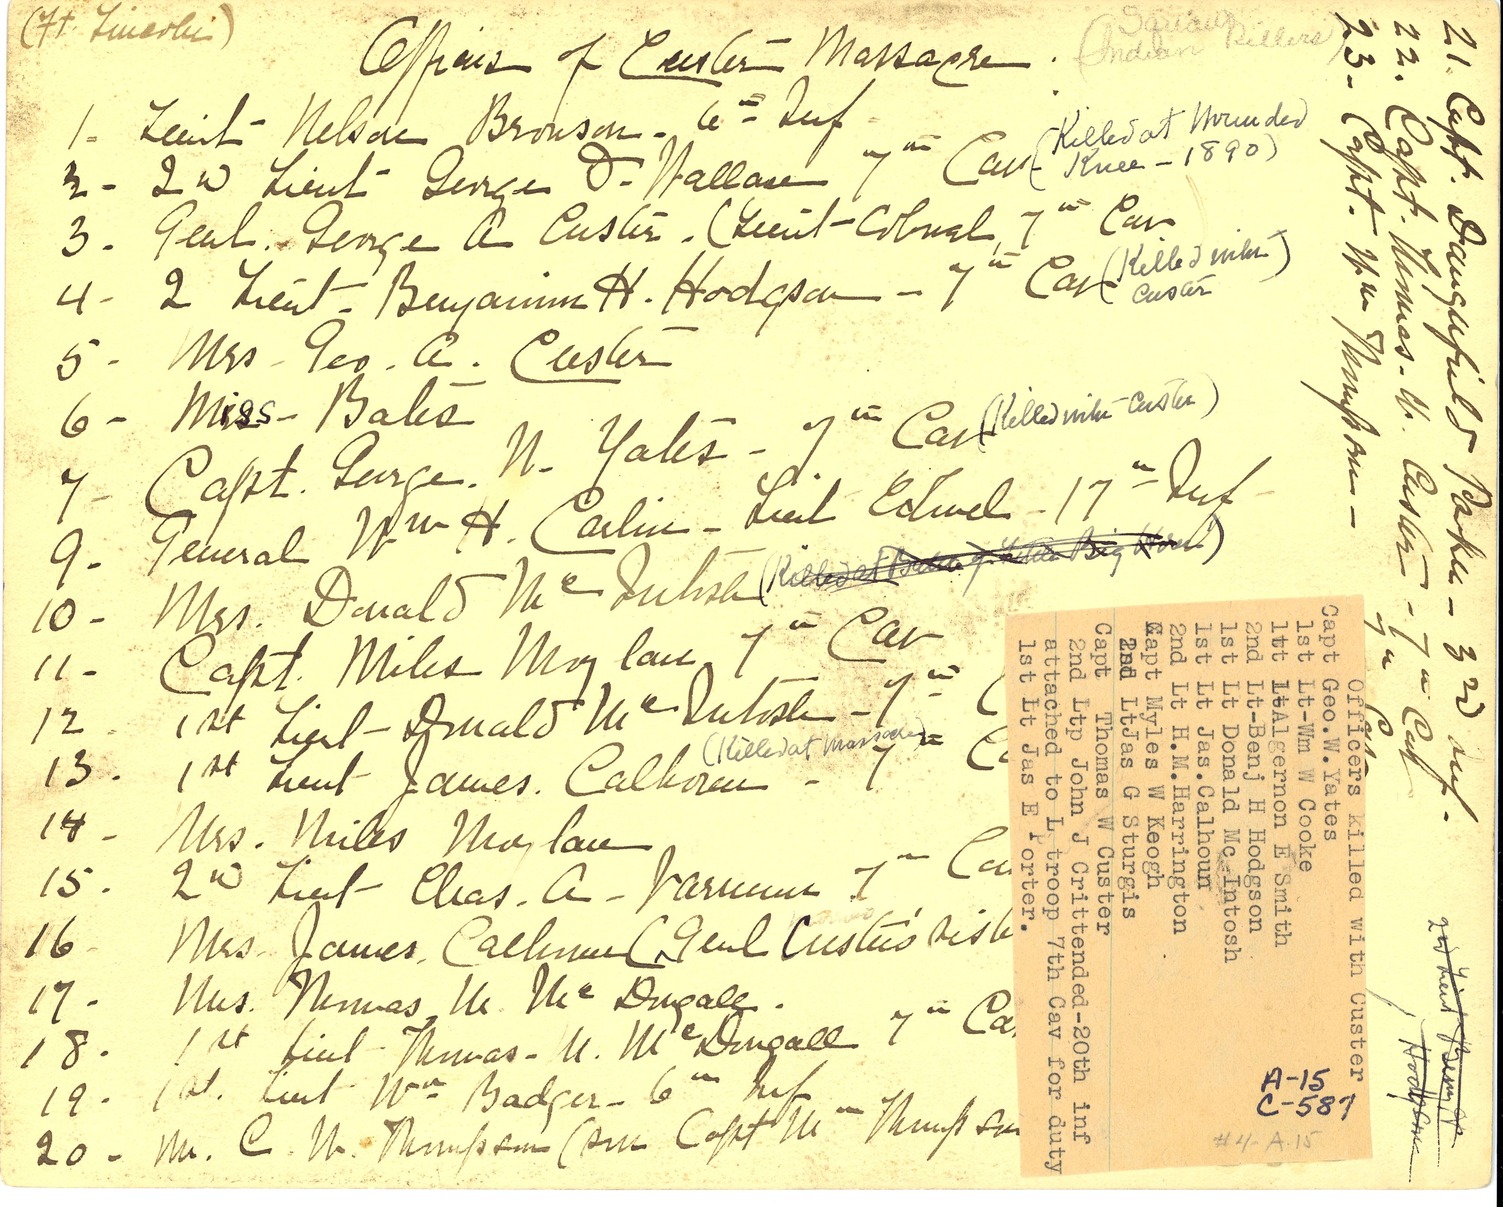 (Ft. Lincoln)
Squaw
(Indian Killers)
Officers of Custer Massacre.
1- Lieut- Nelson Bronson- 6th Inf-
2- 2nd Lieut- George D- Wallace 7th Cav- (Killed at Wounded
Knee - 1890)
3- Genl. George A Custer. (Lieut-Colonel, 7th Cav
4- 2 Lieut- Benjamin H. Hodgson - 7th Cav (Killed with
Custer)
5- Mrs- Geo. A. Custer
6- Miss- Bates
7- Capt. George. W- Yates- 7th Cav (Killed with Custer)
9- General Wm H. Carlin- Lieut 17th Inf-
10- Mrs. Donald McIntosh (Killed at Battle of Little Big Horn)
11- Capt. Miles Moylan 7th Cav
12. 1st Lieut- Donald McIntosh - 7th C
(Killed at Massacre)
13. 1st Lieut James. Calhoun - 7th Ca
14- Mrs. Miles Moylan
15. 2nd Lieut Chas. A- Varnum 7th Cav
16 Mrs- James. Calhoun (Genl Custer's sist
17- Mrs. Thomas M McDugall.
18. 1st Lieut- Thomas- M. McDougall 7th Cav
19. 1st. Lieut Wm Badger- 6th Inf
20- Mr. C. W. Thompson (son Capt Wm Thompson
21. Capt. Daingerfield Parker- 3rd Inf.
22. Capt. Thomas- W. Custer- 7th Cav
23- Capt. Wm Thompson- 7th Cav
Officers killed with Custer
Capt Geo.W.Yates
1st Lt-Wm W Cooke
1tt LtAlgernon E Smith
2nd Lt-Benj H Hodgson
1st Lt Donald Mc Intosh
1st Lt Jas.Calhoun
2nd Lt H.M.Harrington
Capt Myles W Keogh
2nd LtJas G Sturgis
Capt Thomas W Custer
2nd Ltp John J Crittended-20th inf
attached to L troop 7th Cav for duty
1st Lt Jas E Porter.
A-15
C-587
#4-A.15
2nd Lieut Benj H
Hodgson